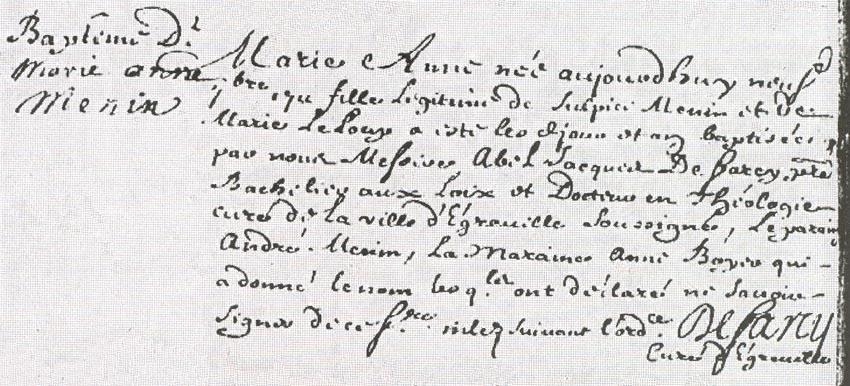 Baptême De
Marie Anne
Menin
Marie Anne née aujourdhuy neuf
bre fille Legitime de Sulpice Menin et de
Marie Le Loup a esté les d jour et an baptisée
par nous Messire Abel Jacques De Sarcy ptre
Bachelier aux Loix et Docteur en Théologie
curé de la ville d'Égreville Soussigné, Le parain
André Menin, La Maraine Anne Boyer qui
a donné le nom ont déclaré ne Savoir
Signer de ce suivant l'ordce DeSarcy
Curé d'Égreville